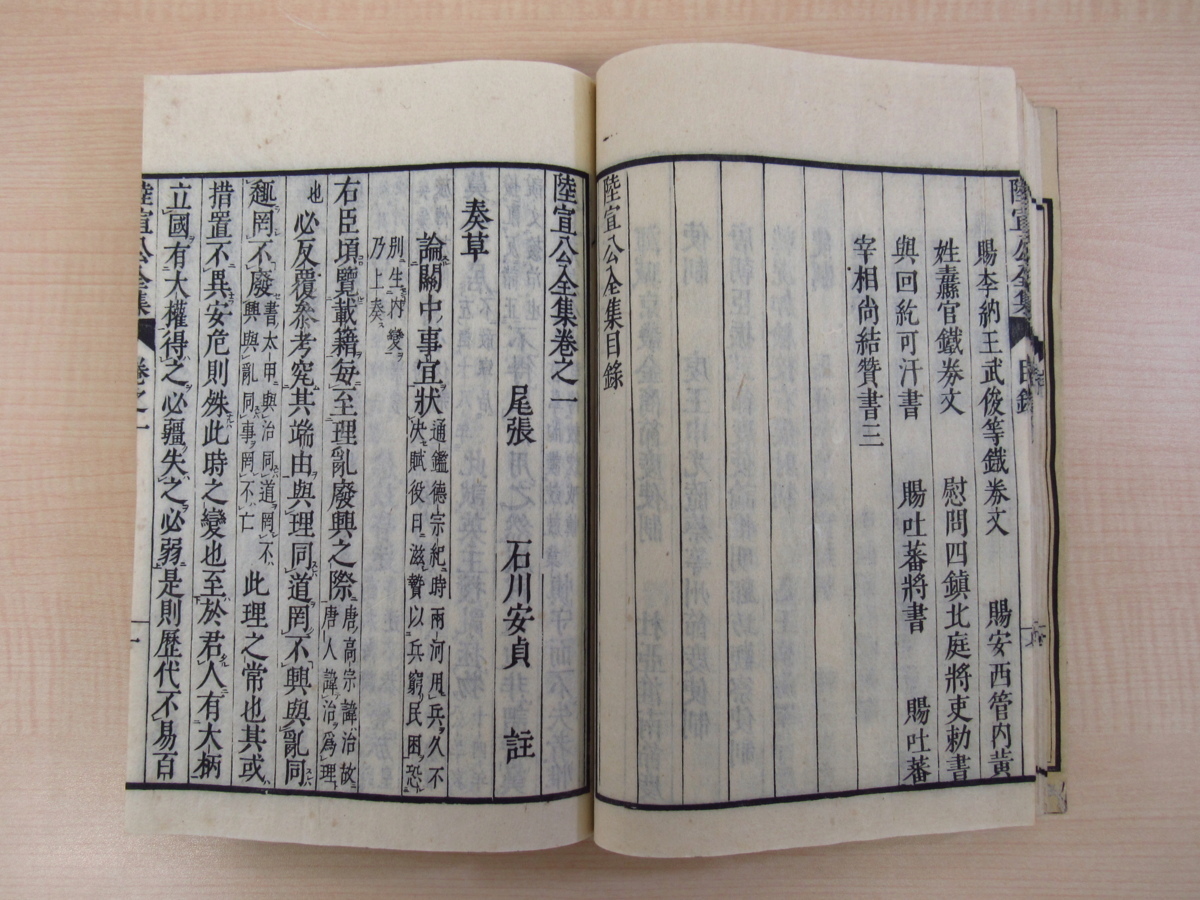 陸宣公全集 目錄
賜李納王武俊等鐵券文 賜安西管內黃
姓纛官鐵券文 慰問四鎮北庭將吏勅書
與回紇可汗書 賜吐蕃將書 賜吐蕃
宰相尚結贊書三
陸宣公全集目錄
陸宣公全集卷之一
尾張 石川安貞 註
奏草
論關中事宜狀 通鑑德宗紀時兩河用兵久不
決賦役日滋贄以兵窮民困恐
別生內變
乃上奏
右臣頃覽載籍每至理亂廢興之際 唐高宗諱治故
唐人諱治爲理
也 必反覆參考究其端由與理同道罔不興與亂同
趣罔不廢 書太甲與治同道罔不
興與亂同事罔不亡 此理之常也其或
措置不異安危則殊此時之變也至於君人有大柄
立國有大權得之必疆失之必弱是則歷代不易百
陸宣公全集 卷之一 一